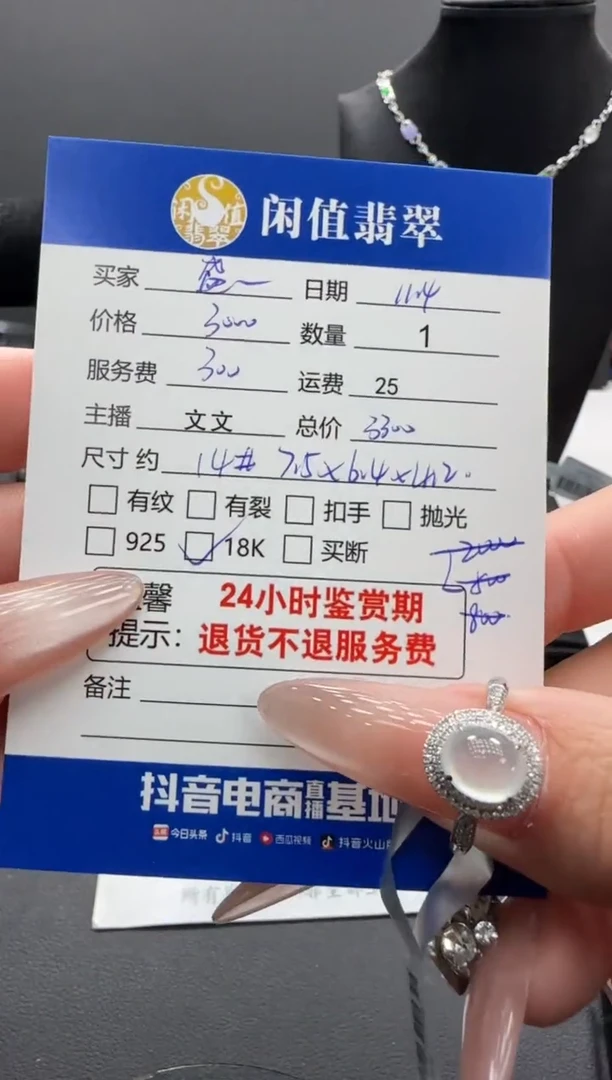 闲值翡翠
闲值翡翠
买家 日期 11.4
价格 3000 数量 1
服务费 300 运费 25
主播 文文 总价 3300
尺寸 约 14# 7.5×6.4×
有纹 有裂 扣手 抛光
925 18K 买断
馨 24小时鉴赏期
提示: 退货不退服务费
备注
抖音电商直播基地
头条 今日头条 抖音 西瓜视频 抖音火山